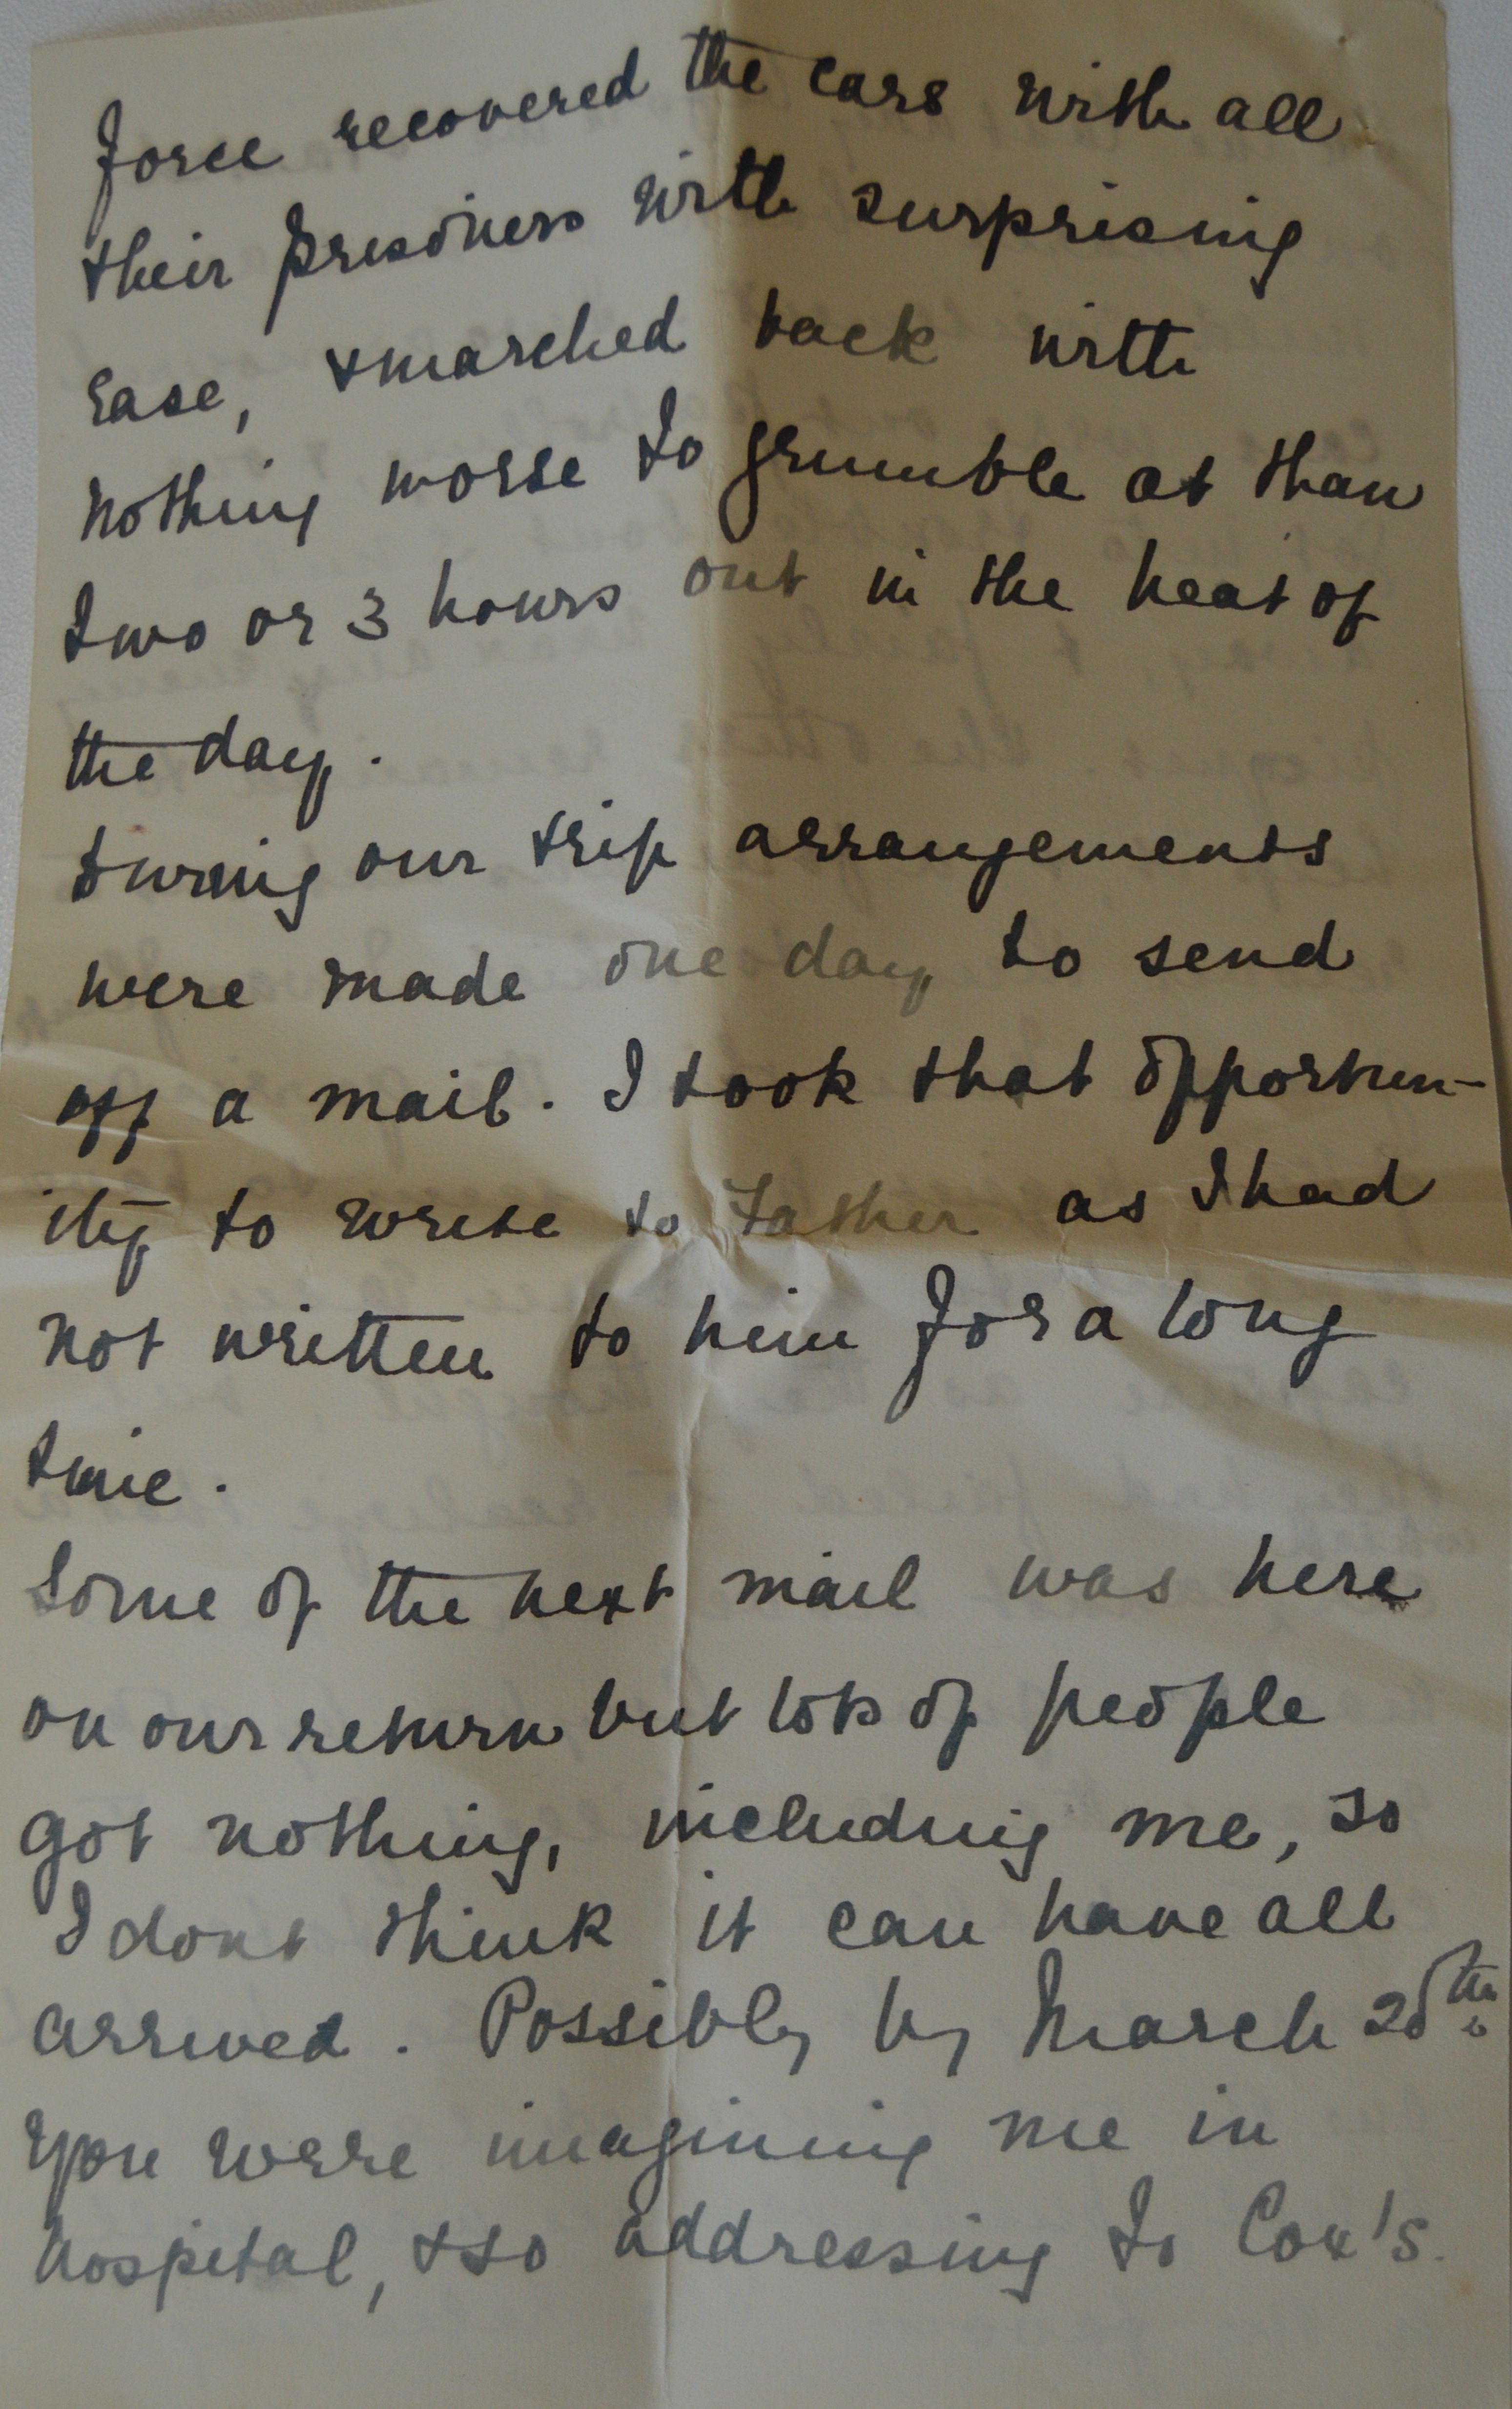 force recovered the cars with all
their prisoners with surprising
ease, & marched back with
nothing worse to grumble at than
two or 3 hours out in the heat of
the day.
During our trip arrangements
were made one day to send
off a mail. I took that opportun-
ity to write to Father as I had
not written to him for a long
time.
Some of the next mail was here
on our return but lots of people
got nothing, including me, so
I dont think it can have all
arrived. Possibly by March 25th
you were imagining me in
hospital, & so addressing to Cox's.